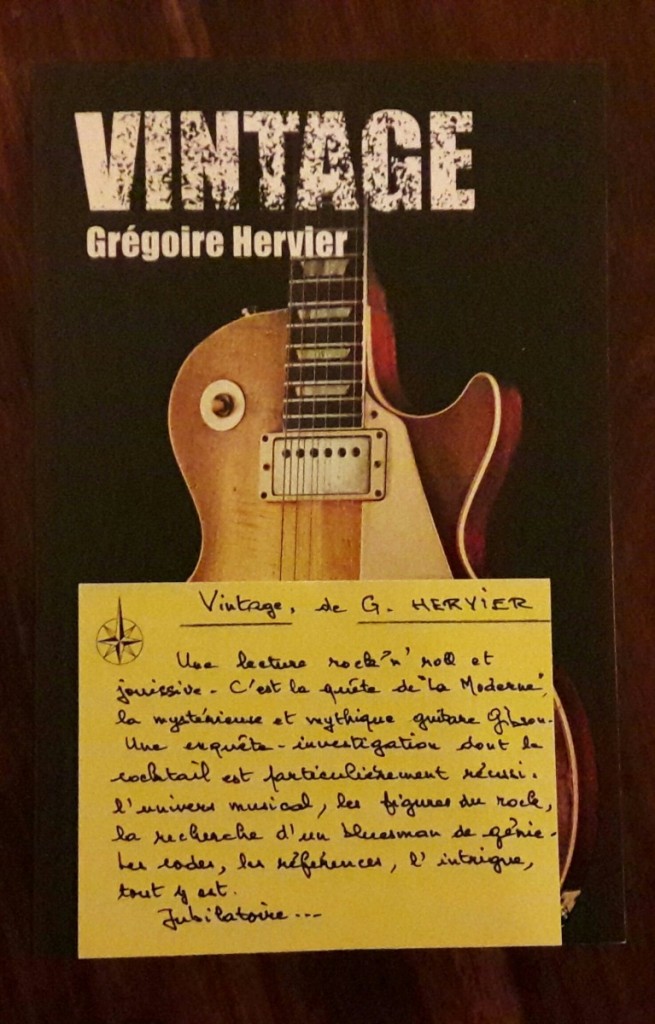 VINTAGE
Grégoire Hervier
Vintage, de G. HERVIER
Une lecture rock'n'roll et
jouissive - C'est la quête de "La Moderne",
la mystérieuse et mythique guitare Gibson.
Une enquête-investigation dont le
cocktail est particulièrement réussi.
l'univers musical, les figures du rock,
la recherche d'un bluesman de génie -
Les codes, les références, l'intrigue,
tout y est.
Jubilatoire ---